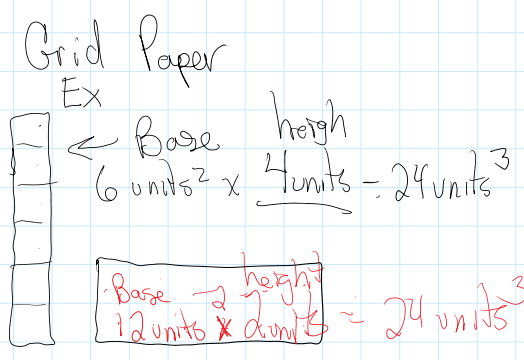 Grid Paper
Ex
Base heigh
6 units² x 4units = 24units³
Base height
12units² x 2units = 24 units³